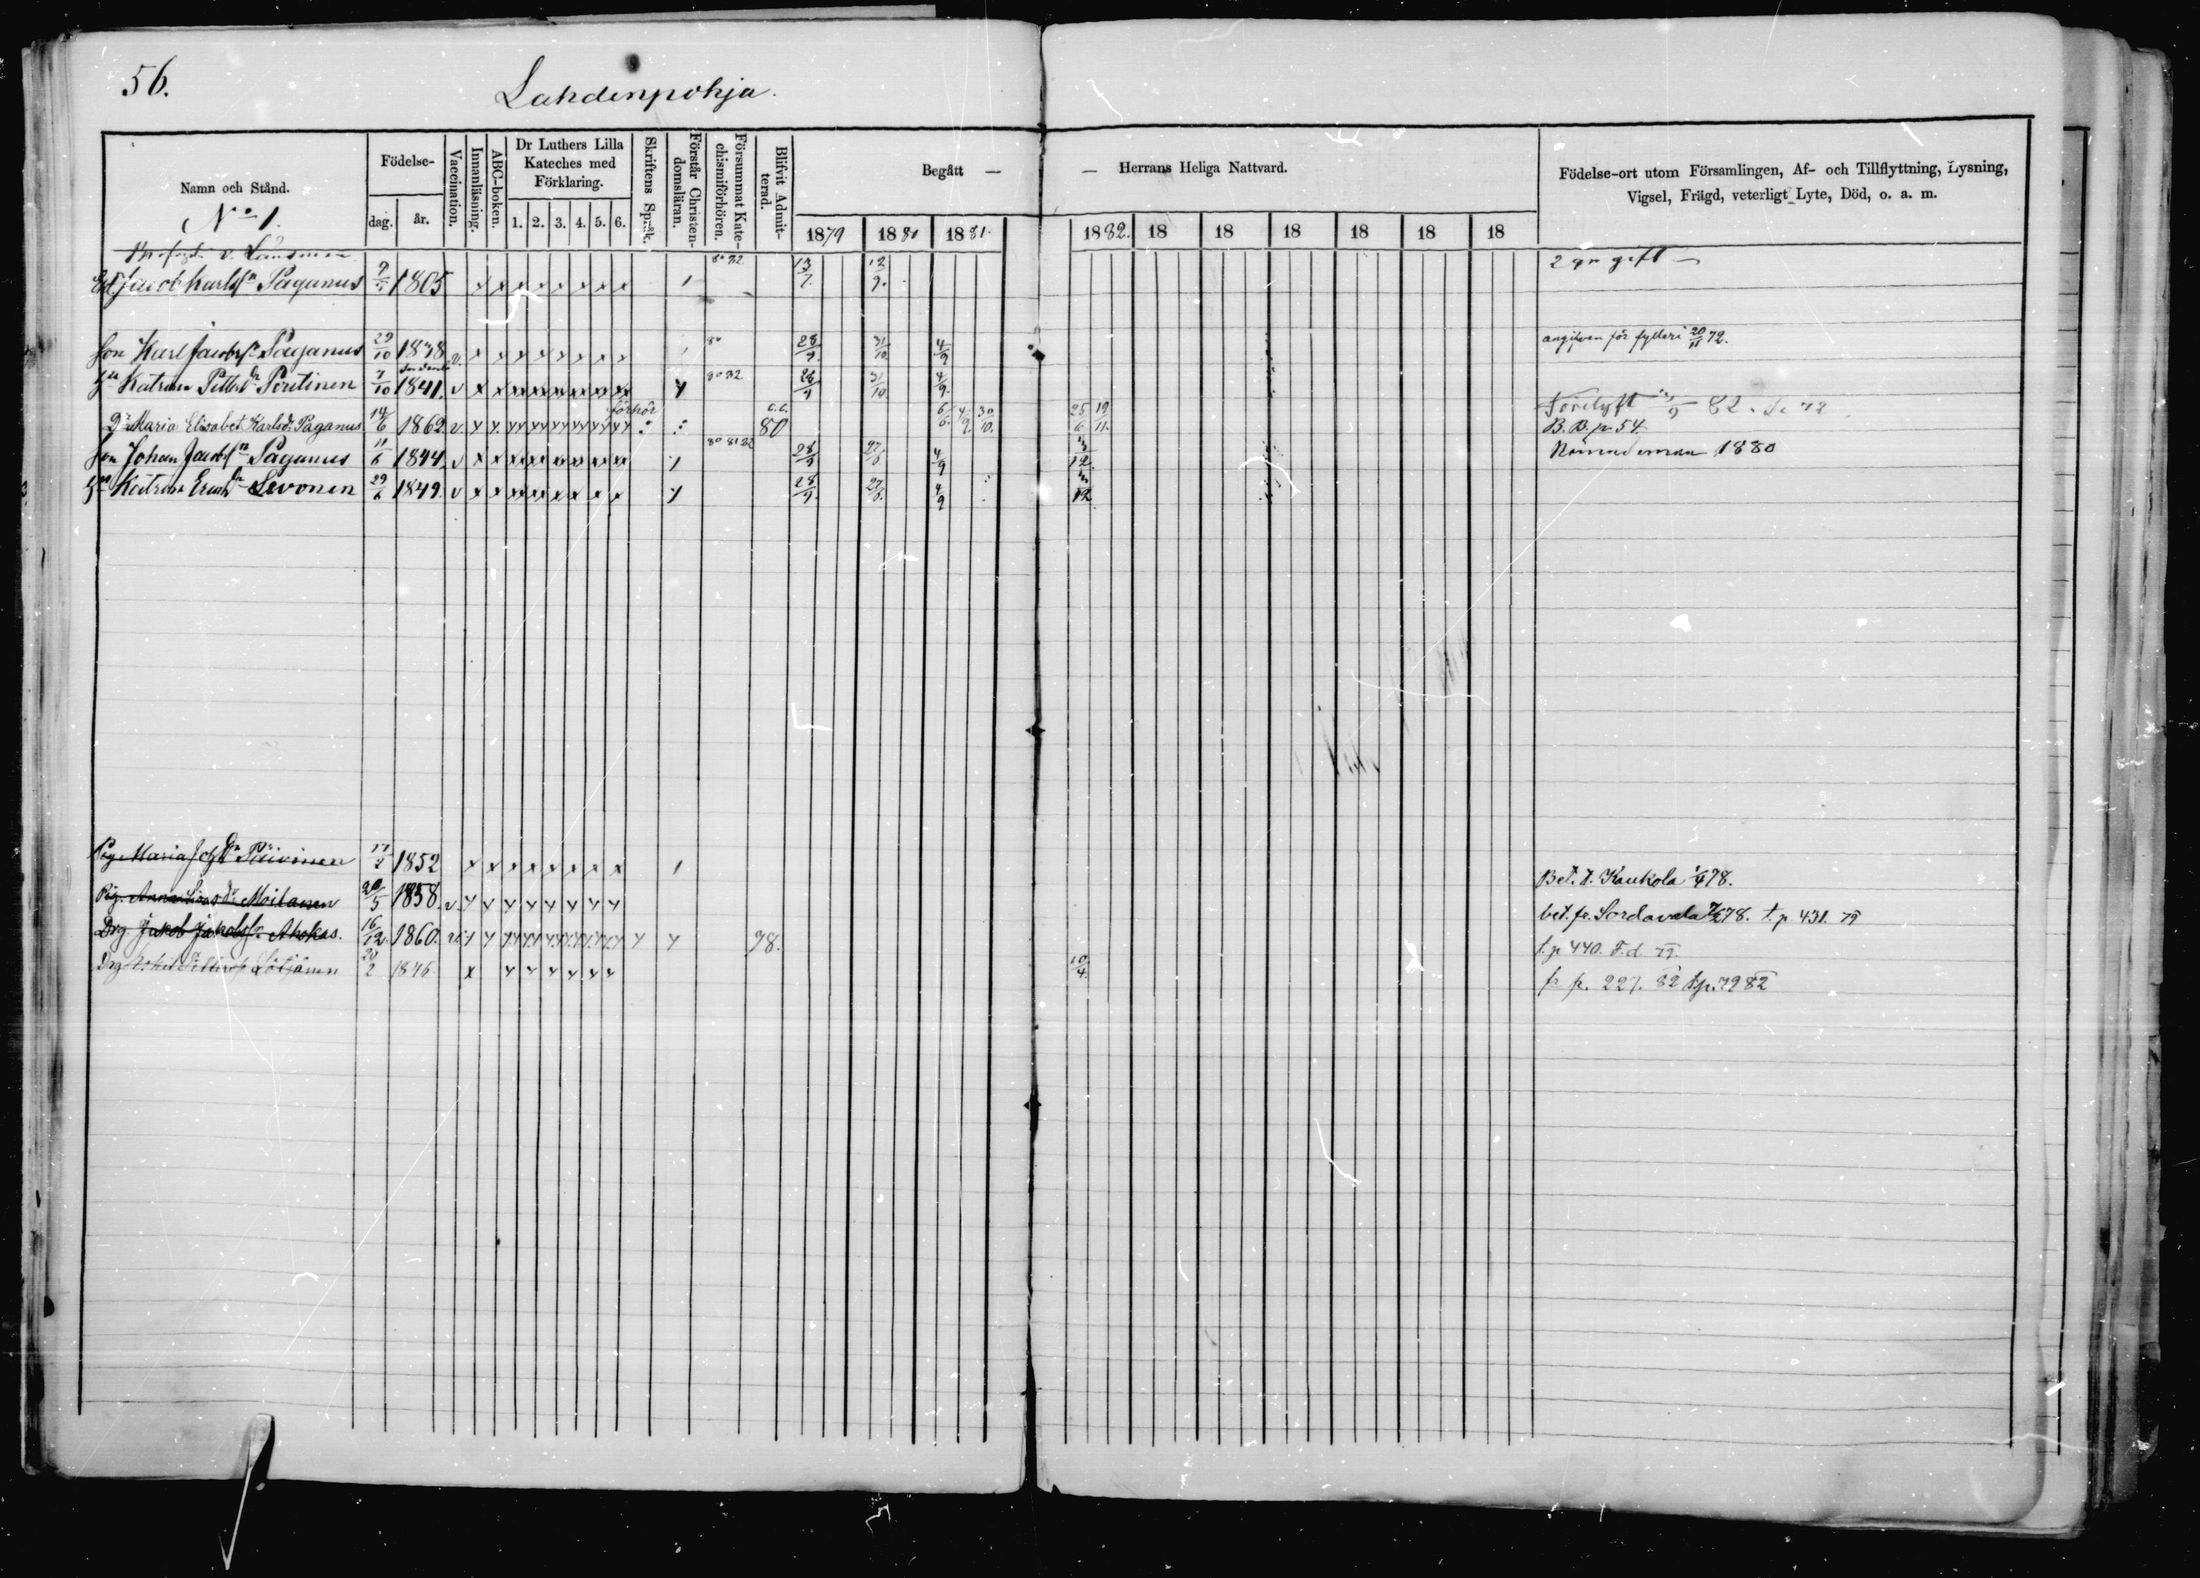 56.
Lahdenpohja.
Namn och Stånd.
Födelse-
dag.
år.
Vaccination.
Innanläsning.
ABC-boken.
Dr Luthers Lilla Kateches med Förklaring.
1. 2. 3. 4. 5. 6.
Skriftens Språk.
Förstår Christendomsläran.
Försummat Katechismiförhören.
Blifvit Admitterad.
Begått — — Herrans Heliga Nattvard.
1879 1880 1881. 1882. 18 18 18 18 18 18
Födelse-ort utom Församlingen, Af- och Tillflyttning, Lysning,
Vigsel, Frägd, veterligt Lyte, Död, o. a. m.
No 1.
Jacob Karlsn Paganus 1805 x x x x x x x x 13/7. 12/9. 2 gn gift —
Son Karl Jacobsn Paganus 29/10 1838 v. x x x x x x x x 80 28/9. 31/10. 4/9 angifven för fylleri 20/11 72.
Hu Katrina Pettersdr Poutinen 7/10 1841. v x x 80 82 28/9 31/10. 4/9.
förhör
Dr Maria Elisabet Karlsdr Paganus 14/6 1862. v. 80 6/6. 4/9. 30/10. 25/6 19/11. B. B. p 54.
Son Johan Jacobsn Paganus 11/6 1844. v x x 80 81 82 28/9 27/6. 4/9 3/12. Nämndeman 1880
Hu Katrina Ericsdr Levonen 29/6 1849. v x x 28/9. 27/6. 4/9 3/12
Pig. Maria Johsdr Päivinen 17/ 1852 x x x x x x x x Bet. t. Kaukola 1/4 78.
Pig. Anna Moilanen 20/5 1858. v. bet. fr. Sordavala 78. t. p 431. 79
Drg. Jakob Jakobsn Ahokas. 16/12. 1860. 78. t. p 440. F. d. 79.
Drg 20/2 1846. x 10/4. fr p. 227. 82 t p. 79 82